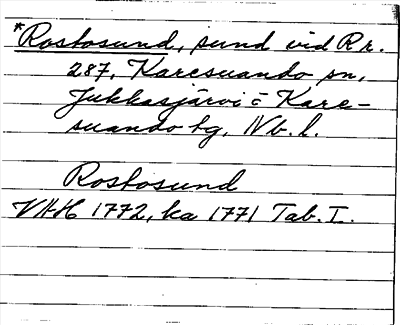 *Rostosund, sund vid Rr.
287, Karesuando sn,
Jukkasjärvi o Kare-
suando tg, Nb. l.
Rostosund
VAH 1772, ka 1771 Tab. I.